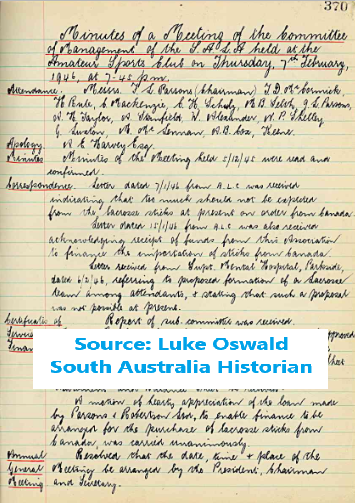 370
Minutes of a Meeting of the Committee
of Management of the S.A.L.A held at the
Amateur Sports Club on Thursday, 7th February,
1946, at 7-45 p.m.
Attendance. Messrs. L.S. Parsons (Chairman) J.D. McCormick,
H. Pank, C. Mackenzie, C.H. Scholz, M.B. Welch, G.L. Parsons,
W.H. Taylor, Stanfield, W. Alexander, W.P. Shelley
G. Mc Lennan, A.B. Cox,
Apology. A E Harvey Esq.
Minutes Minutes of the Meeting held 5/12/45 were read and
confirmed.
Correspondence. Letter dated 7/1/46 from A.L.C. was received
indicating that too much should not be expected
from the lacrosse sticks at present on order from Canada.
Letter dated 15/1/46 from A.L.C was also received
acknowledging receipt of funds from this Association
to finance the importation of sticks from Canada.
Letter received from Supt. Mental Hospital, Parkside,
dated 6/2/46, referring to proposed formation of a Lacrosse
team among attendants, & stating that such a proposal
was not possible at present.
Certificate of Report of sub. committee was received.
Service approved
Source: Luke Oswald
South Australia Historian
A motion of hearty appreciation of the loan made
by Parsons & Robertson Ltd, to enable finance to be
arranged for the purchase of lacrosse sticks from
Canada, was carried unanimously.
Annual Resolved that the date, time & place of the
General Meeting be arranged by the President, Chairman
Meeting and Secretary.